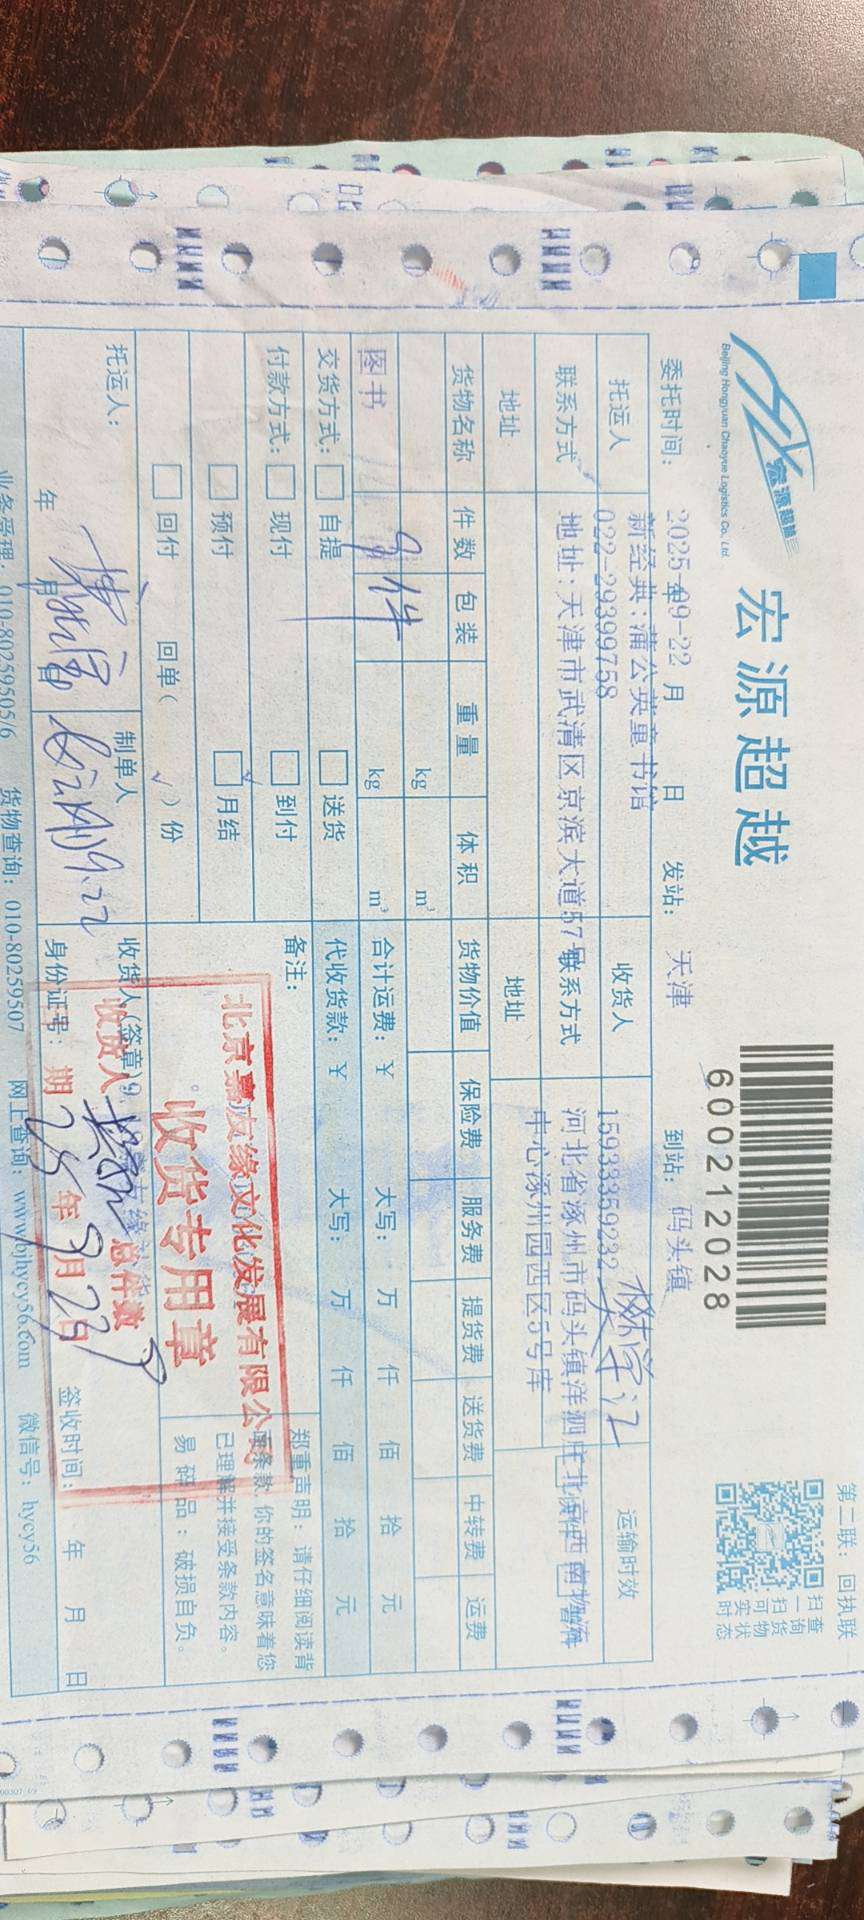 宏源超越
Beijing Hongyuan Chaoyue Logistics Co., Ltd.
宏源超越
600212028
第二联：回执联
扫一扫可实时
查询货物状态
委托时间：2025-09-22 年 月 日 发站：天津 到站：码头镇
托运人 新经典:蒲公英童书馆 收货人 运输时效
联系方式 022-29399758 联系方式 15933359232
地址 地址:天津市武清区京滨大道57号 地址 河北省涿州市码头镇洋泗庄北京西南物流
中心涿州园西区5号库
货物名称 件数 包装 重量 体积 货物价值 保险费 服务费 提货费 送货费 中转费 运费
kg m³
图书 9件 kg m³
合计运费：￥ 大写： 万 仟 佰 拾 元
交货方式： 自提 送货
代收货款：￥ 大写： 万 仟 佰 拾 元
付款方式： 现付 到付
预付 月结
回付 回单（ ）份
备注：
郑重声明：请仔细阅读背
面条款，你的签名意味着您
已理解并接受条款内容。
易碎品：破损自负。
北京嘉友缘文化发展有限公司
收货专用章
收货人 总件数 9
期 25年9月23日
托运人：
年 月 日
制单人 09.22
收货人（签章）
身份证号：
签收时间： 年 月 日
业务受理：010-80259505/6 货物查询：010-80259507 网上查询：www.bjhycy56.com 微信号：hycy56